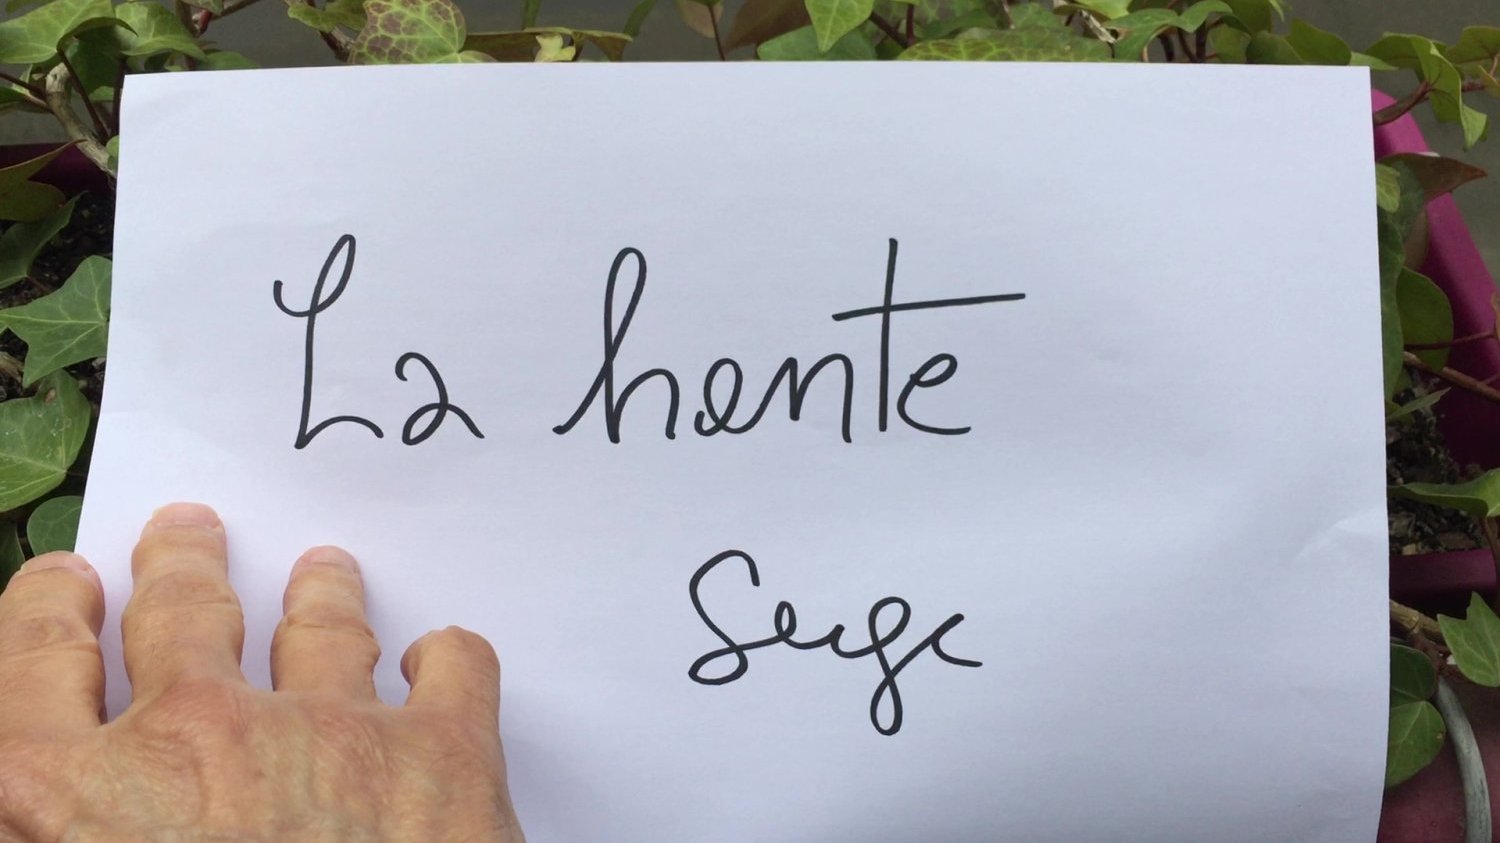 La honte
Serge